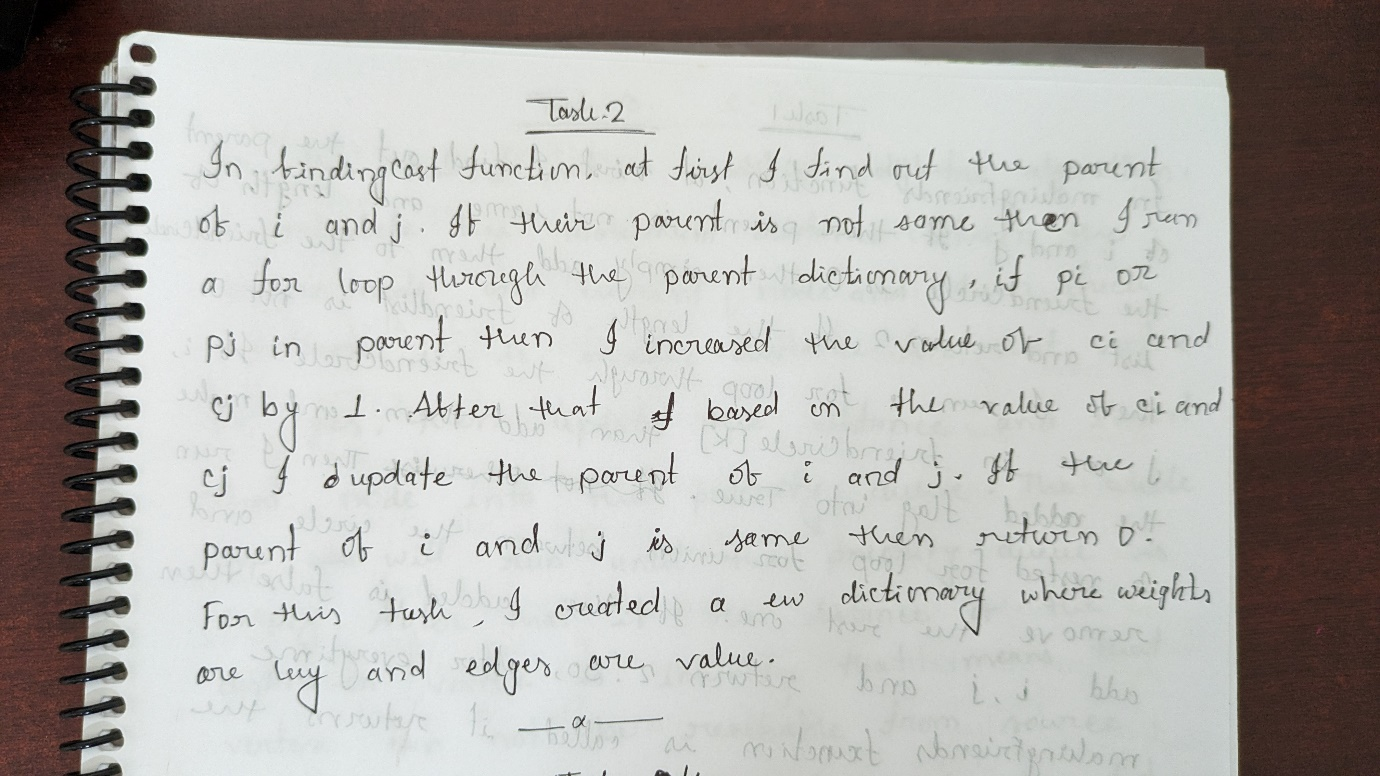 Task-2
In findingCost function, at first I find out the parent
of i and j. If their parent is not same then I run
a for loop through the parent dictionary, if pi or
pj in parent then I increased the value of ci and
cj by 1. After that based on the value of ci and
cj I update the parent of i and j. If the
parent of i and j is same then return 0.
For this task, I created a ew dictionary where weights
are key and edges are value.